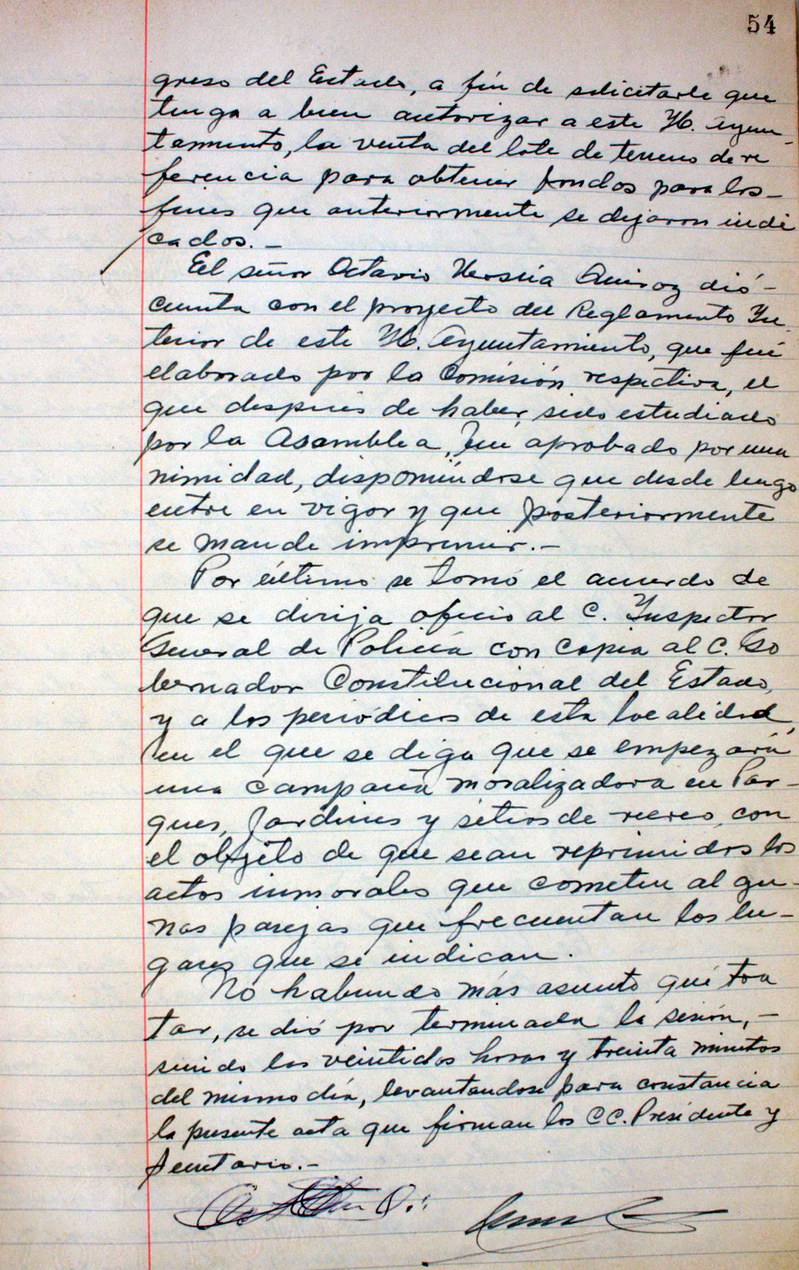 54
greso del Estado, a fín de solicitarle que
tenga a bien autorizar a este H. Ayun-
tamiento, la venta del lote de terreno de re
ferencia para obtener fondos para los-
fines que anteriormente se dejaron indi
cados.-
El señor Octavio Quiroz dió-
cuenta con el proyecto del Reglamento In-
terior de este H. Ayuntamiento, que fué
elaborado por la Comisión respectiva, el
que después de haber sido estudiado
por la Asamblea, fué aprobado por una
nimidad, disponiéndose que desde luego
entre en vigor y que posteriormente
se mande imprimir.-
Por último se tomó el acuerdo de
que se dirija oficio al C. Inspector
General de Policía con copia al C. Go
bernador Constitucional del Estado,
y a los periódicos de esta localidad,
en el que se diga que se empezará
una campaña moralizadora en Par-
ques, Jardines y sitios de recreo, con
el objeto de que sean reprimidos los
actos inmorales que cometen algu-
nas parejas que frecuentan los lu-
gares que se indican.
No habiendo más asunto qué tra
tar, se dió por terminada la sesión,-
siendo las veintidos horas y treinta minutos
del mismo día, levantandose para constancia
la presente acta que firman los CC. Presidente y
Secretario.-